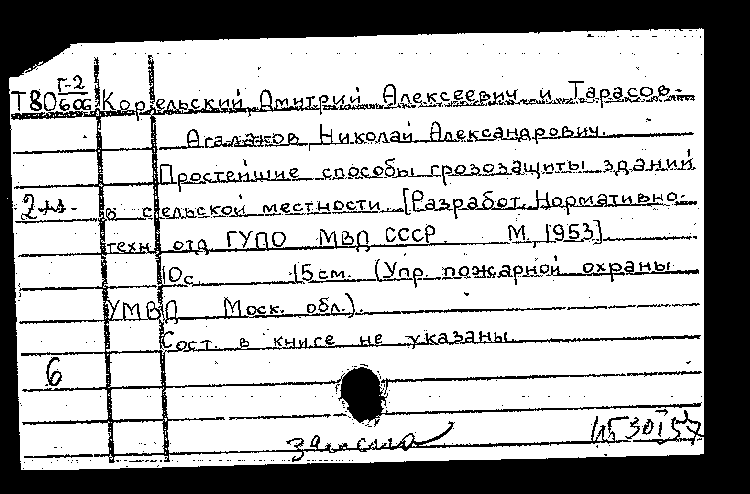 Т80 Г-2/606 Корельский, Дмитрий Алексеевич и Тарасов-
Агалаков, Николай Александрович.
Простейшие способы грозозащиты зданий
в сельской местности. [Разработ. Нормативно-
техн. отд. ГУПО МВД СССР. М., 1953].
10с. 15см. (Упр. пожарной охраны
УМВД Моск. обл.).
Сост. в книге не указаны.
6